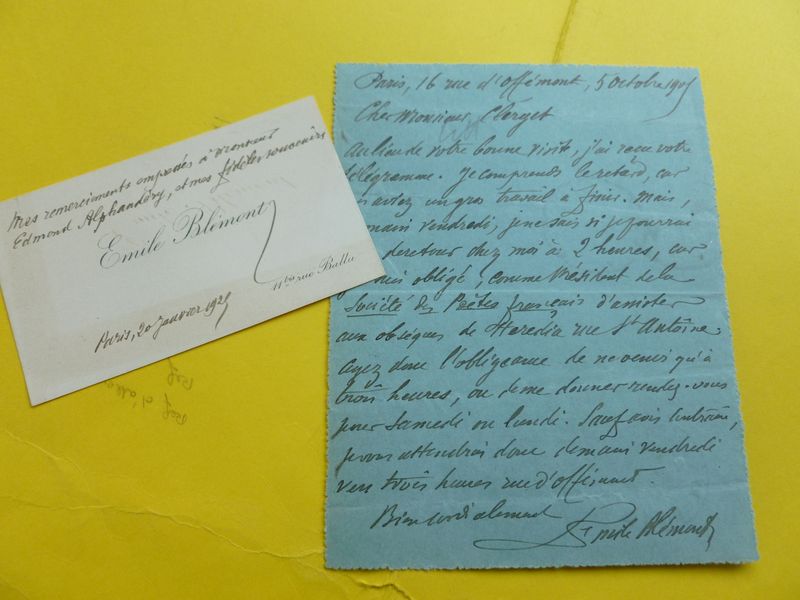 Mes remerciements empressés à Monsieur
Edmond Alphandéry, et mes fidèles souvenirs
Emile Blémont
11 bis rue Ballu
Paris, 20 janvier 1925
Paris, 16 rue d'Offémont, 5 Octobre 1905
Cher Monsieur Clerget
Au lieu de votre bonne visite, j'ai reçu votre
télégramme. Je comprends le retard, car
aviez un gros travail à finir. Mais,
demain vendredi, je ne sais si je pourrai
de retour chez moi à 2 heures, car
suis obligé, comme Président de la
Société des Poètes français d'assister
aux obsèques de Heredia rue St Antoine.
ayez donc l'obligeance de ne venir qu'à
trois heures, ou de me donner rendez-vous
pour Samedi ou lundi. Sauf avis contraire,
je vous attendrai donc demain vendredi
vers trois heures rue d'Offémont.
Bien cordialement
Emile Blémont